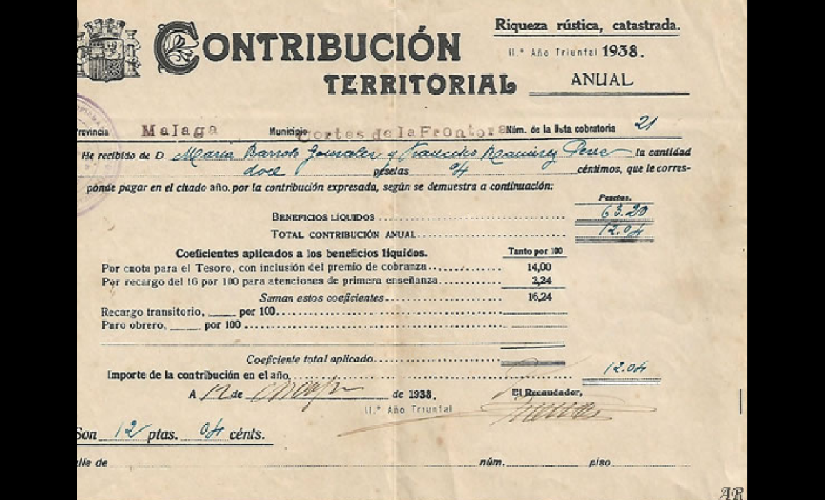 CONTRIBUCIÓN
TERRITORIAL
Riqueza rústica, catastrada.
II.º Año Triunfal 1938.
ANUAL
Provincia Malaga Municipio Cortes de la Frontera Núm. de la lista cobratoria 21
He recibido de D. María Gonzalez y Ramirez la cantidad
doce pesetas 04 céntimos, que le corres-
ponde pagar en el citado año, por la contribución expresada, según se demuestra a continuación:
Pesetas.
BENEFICIOS LÍQUIDOS 63.20
TOTAL CONTRIBUCIÓN ANUAL 12.04
Coeficientes aplicados a los beneficios líquidos. Tanto por 100
Por cuota para el Tesoro, con inclusión del premio de cobranza 14,00
Por recargo del 16 por 100 para atenciones de primera enseñanza 2,24
Suman estos coeficientes 16,24
Recargo transitorio, ____ por 100
Paro obrero, ____ por 100
Coeficiente total aplicado
Importe de la contribución en el año 12.04
A 12 de de 1938. El Recaudador,
II.º Año Triunfal
Son 12 ptas. 04 cénts.
Calle de núm. piso
AR